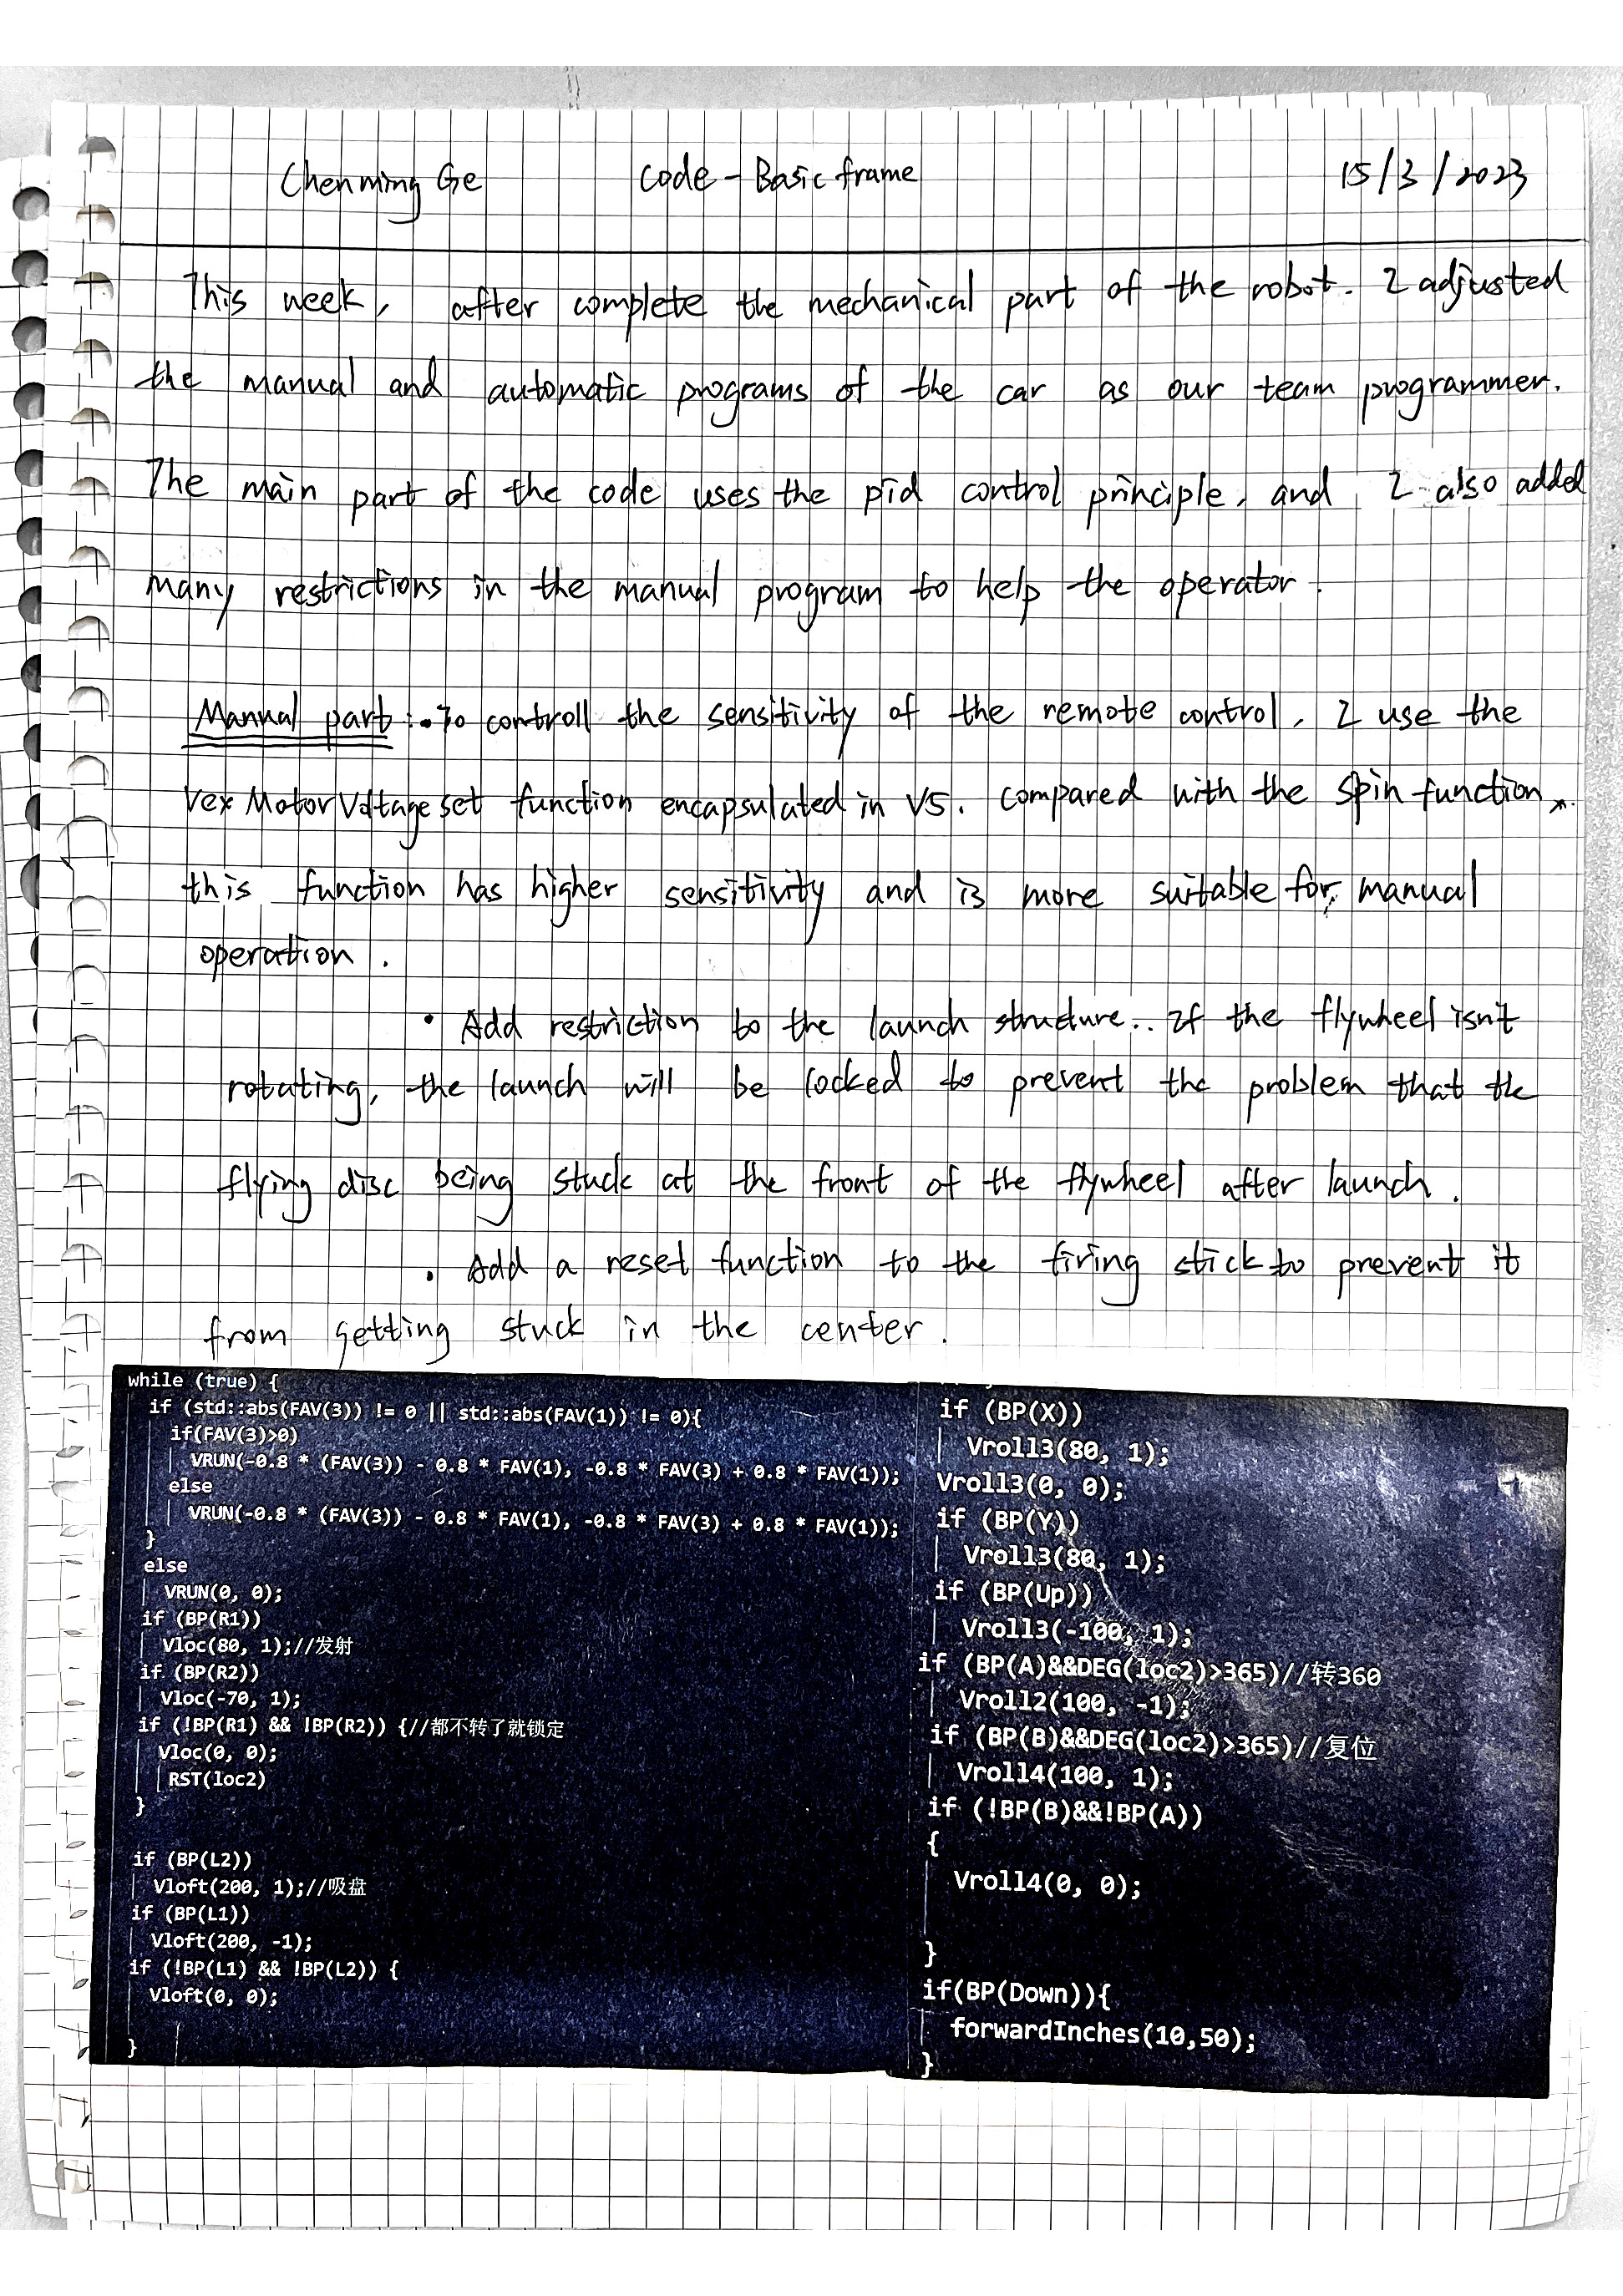 Chenming Ge code - Basic frame 15/3/2023
This week, after complete the mechanical part of the robot. I adjusted
the manual and automatic programs of the car as our team programmer.
The main part of the code uses the pid control principle, and I also added
many restrictions in the manual program to help the operator.
Manual part: • To controll the sensitivity of the remote control, I use the
Vex Motor Voltage set function encapsulated in V5. compared with the spin function,
this function has higher sensitivity and is more suitable for manual
operation.
• Add restriction to the launch structure.. If the flywheel isn't
rotating, the launch will be locked to prevent the problem that the
flying disc being stuck at the front of the flywheel after launch.
• Add a reset function to the firing stick to prevent it
from getting stuck in the center.
while (true) {
if (std::abs(FAV(3)) != 0 || std::abs(FAV(1)) != 0){
if(FAV(3)>0)
VRUN(-0.8 * (FAV(3)) - 0.8 * FAV(1), -0.8 * FAV(3) + 0.8 * FAV(1));
else
VRUN(-0.8 * (FAV(3)) - 0.8 * FAV(1), -0.8 * FAV(3) + 0.8 * FAV(1));
}
else
VRUN(0, 0);
if (BP(R1))
Vloc(80, 1);//发射
if (BP(R2))
Vloc(-70, 1);
if (!BP(R1) && !BP(R2)) {//都不转了就锁定
Vloc(0, 0);
RST(loc2)
}
if (BP(L2))
Vloft(200, 1);//吸盘
if (BP(L1))
Vloft(200, -1);
if (!BP(L1) && !BP(L2)) {
Vloft(0, 0);
}
if (BP(X))
Vroll3(80, 1);
Vroll3(0, 0);
if (BP(Y))
Vroll3(80, 1);
if (BP(Up))
Vroll3(-100, 1);
if (BP(A)&&DEG(loc2)>365)//转360
Vroll2(100, -1);
if (BP(B)&&DEG(loc2)>365)//复位
Vroll4(100, 1);
if (!BP(B)&&!BP(A))
{
Vroll4(0, 0);
}
if(BP(Down)){
forwardInches(10,50);
}